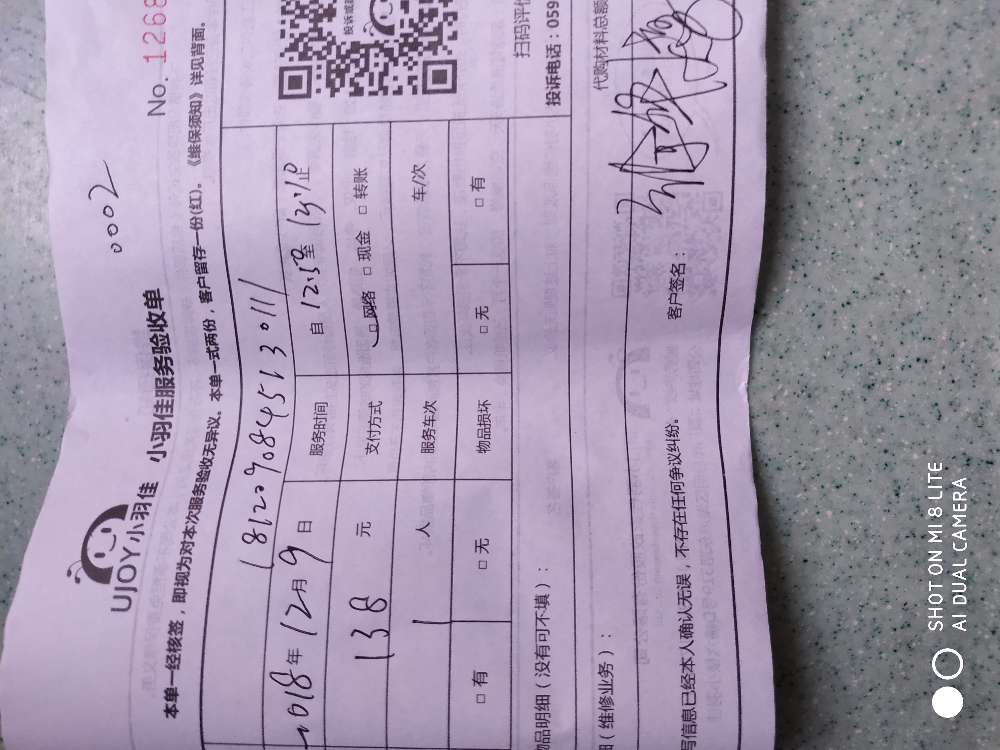 UJOY小羽佳 小羽佳服务验收单
0002
No. 1268
本单一经核签，即视为对本次服务验收无异议。本单一式两份，客户留存一份(红)。《维保须知》详见背面。
181209084513011
2018年12月9日 服务时间 自12:50至13:10止
138元 支付方式 □网络 □现金 □转账
1人 服务车次 车/次
□有 □无 物品损坏 □无 □有
物品明细（没有可不填）：
（维修业务）：
扫码评价
投诉电话：059
代购材料总额
写信息已经本人确认无误，不存在任何争议纠纷。 客户签名：
SHOT ON MI 8 LITE
AI DUAL CAMERA